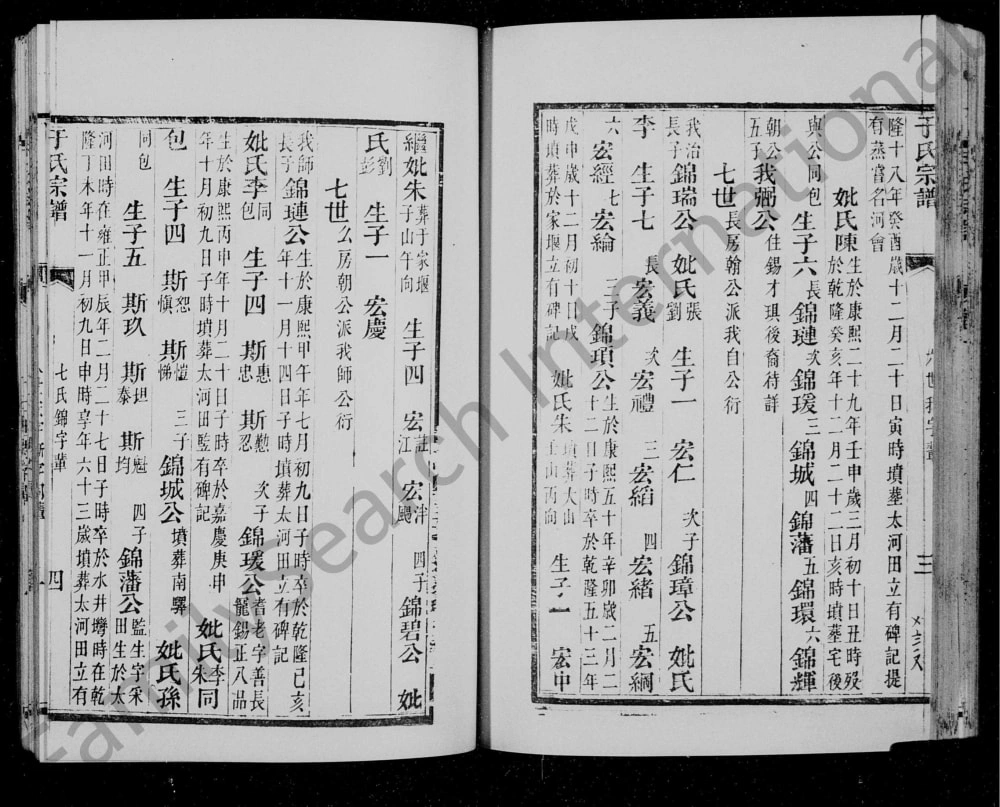 于氏宗譜
隆十八年癸酉歲十二月二十日寅時墳葬太河田立有碑記提
有蒸嘗名河會
妣氏陳生於康熙二十九年壬申歲三月初十日丑時歿
於乾隆癸亥年十二月二十二日亥時墳葬宅後
與公同包 生子六 長錦璉 次錦瑗 三錦城 四錦藩 五錦環 六錦輝
朝公
五子 我弼公住錫才琪後裔待詳
七世長房翰公派我自公衍
我治
長子 錦瑞公 妣氏張
劉 生子一 宏仁 次子錦璋公 妣氏
李 生子七 長宏義 次宏禮 三宏縚 四宏緒 五宏綱
六宏經 七宏綸 三子錦瑣公生於康熙五十年辛卯歲二月二
十二日子時卒於乾隆五十三年
戊申歲十二月初十日戌
時墳葬於家堰立有碑記 妣氏朱墳葬大山
壬山丙向 生子一 宏中
繼妣朱葬于家堰
子山午向 生子四 宏註
江 宏泮
颺 四子錦碧公 妣
氏劉
彭 生子一 宏慶
七世么房朝公派我師公衍
我師
長子 錦璉公生於康熙甲午年七月初九日子時卒於乾隆己亥
年十一月十四日子時墳葬太河田立有碑記
妣氏李同
包 生子四 斯惠
忠 斯懃
忍 次子錦瑗公耆老字善長
寵錫正八品
生於康熙丙申年十月二十日子時卒於嘉慶庚申
年十月初九日子時墳葬太河田監有碑記 妣氏李
朱同
包 生子四 斯恕
慎 斯愷
悌 三子錦城公墳葬南驛 妣氏孫
同包 生子五 斯玖 斯坦
泰 斯魁
均 四子錦藩公監生字采
田生於太
河田時在雍正甲辰年二月二十七日子時卒於水井塆時在乾
隆丁未年十一月初九日申時享年六十三歲墳葬太河田立有
于氏宗譜
七氏錦字輩
四
FamilySearch International